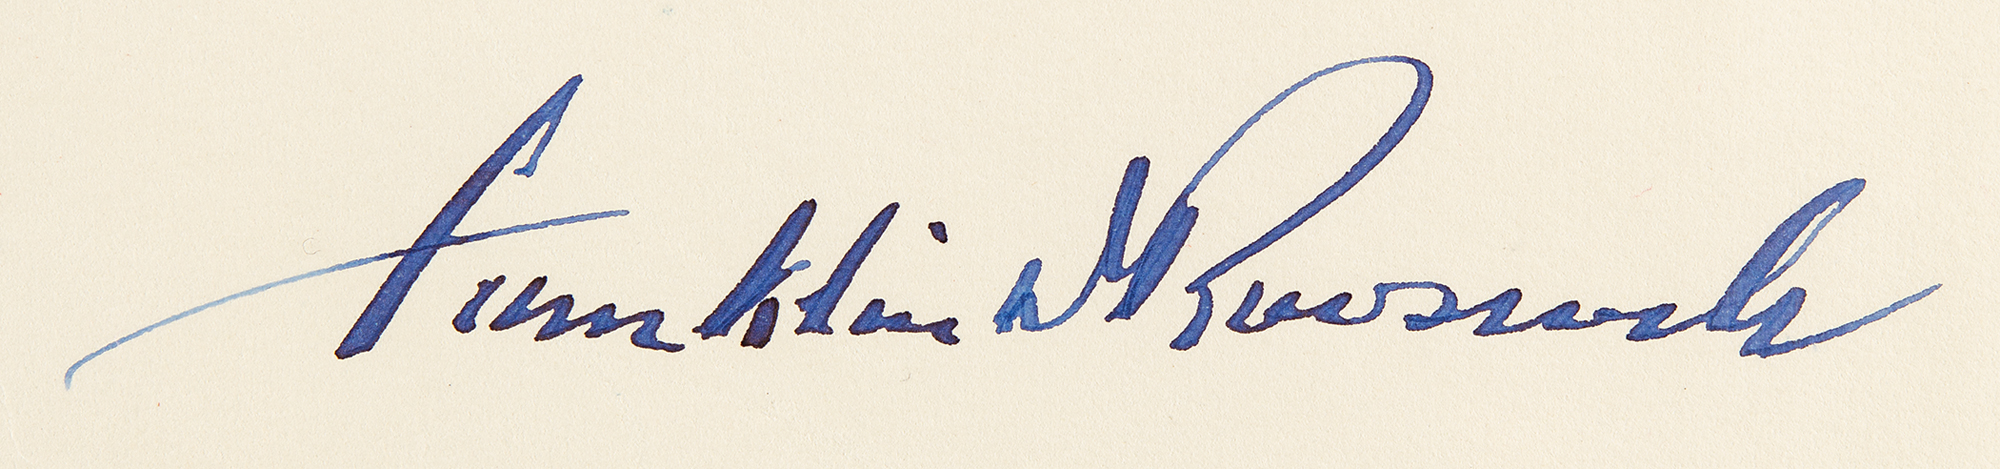 Franklin D Roosevelt